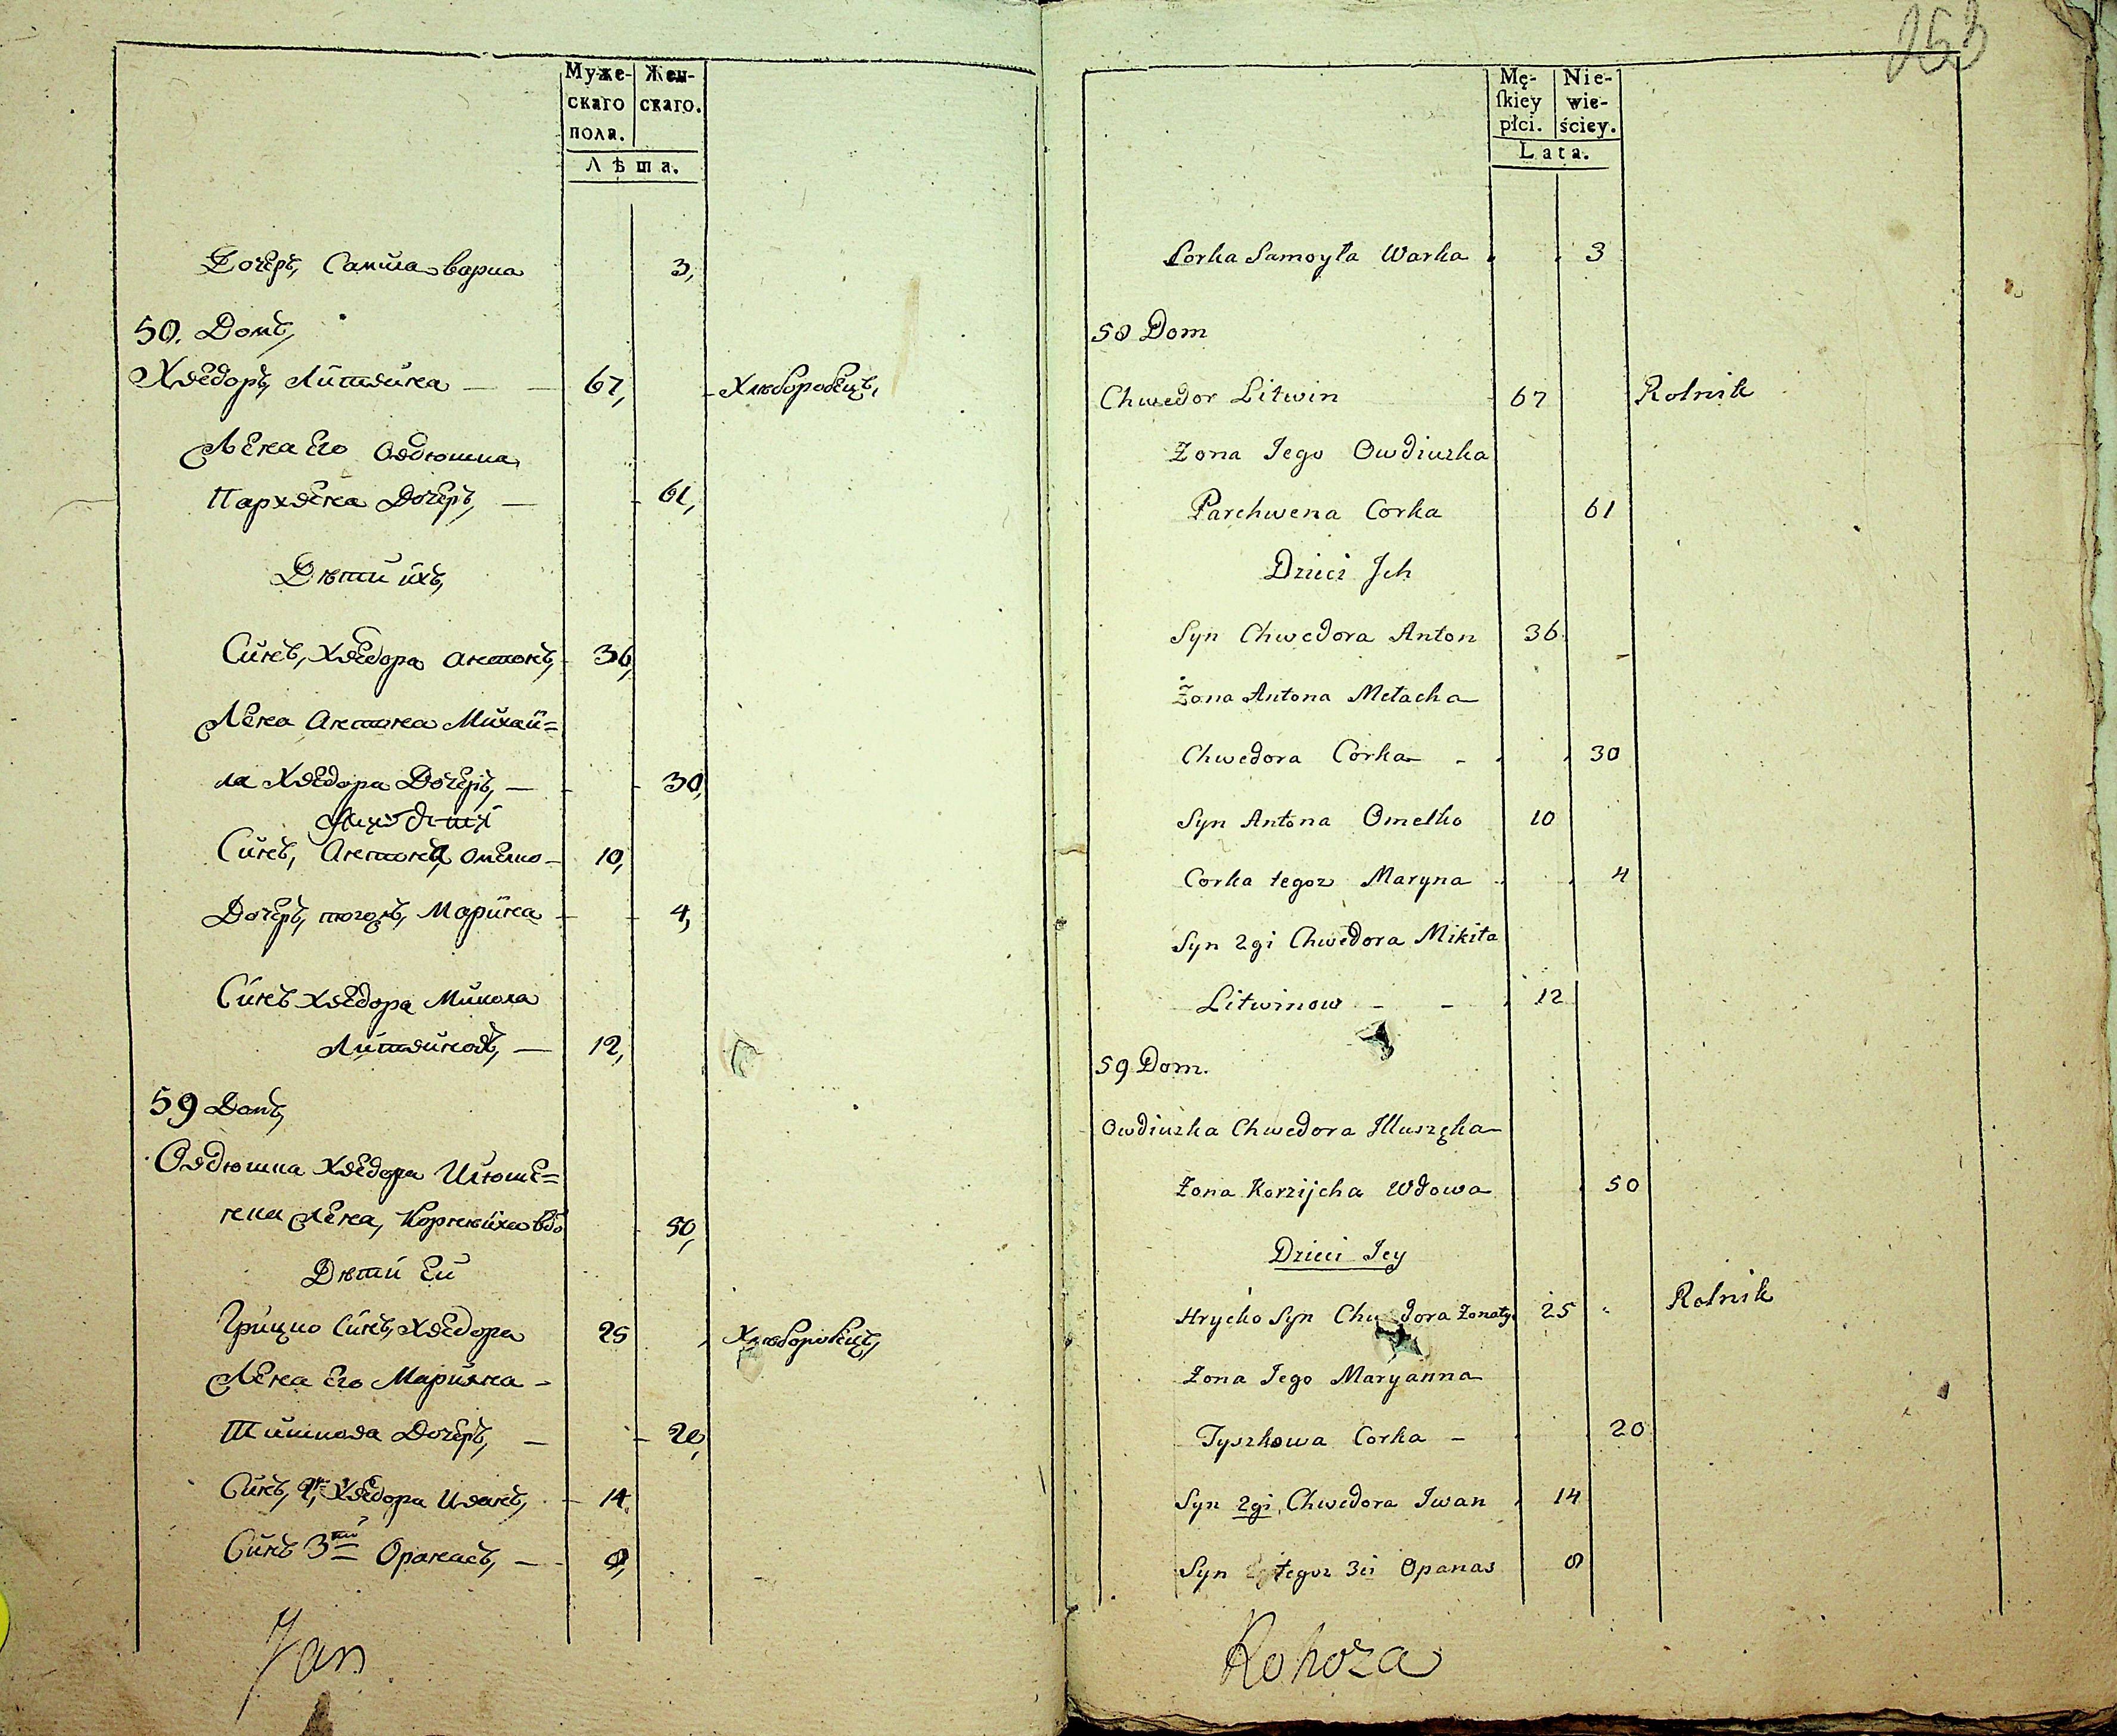 Муже-
скаго
пола.
Жен-
скаго.
Лѣта.
Дочеръ, Самила Варка 3,
50. Домъ,
Хведоръ, Литвинка — — 67, Хлѣборобецъ,
Жена Его Овдюшка
Пархвена Дочеръ, — 61,
Дѣти ихъ,
Синъ, Хведора Антонъ, 36,
Жена Антона Михай=
ла Хведора Дочеръ, — 30,
Синъ, Антона, Омелко — 10,
Дочеръ, тогожъ, Марина 4,
Синъ Хведора Микола
Литвиновъ, — 12,
59 Домъ,
Овдюшка Хведора Илюше=
нка Жена, Корнѣиха вдо 50,
Дѣти Еи
Грицко Синъ, Хведора 25 Хлѣборобецъ,
Жена Его Марияна —
Тишкова Дочеръ, — 20,
Синъ, 2й, Хведора Иванъ, 14,
Синъ 3тій Опанасъ, — 8,
Jan
263
Mę-
ſkiey
płci.
Nie-
wie-
ściey.
Lata.
Corka Samoyła Warka 3
58 Dom
Chwedor Litwin 67 Rolnik
Żona Jego Owdiuszka
Parchwena Corka 61
Dzieci Jch
Syn Chwedora Anton 36
Żona Antona Metacha
Chwedora Corka - 30
Syn Antona Omelko 10
Corka tegoz Maryna 4
Syn 2gi Chwedora Mikita
Litwinow - - 12
59 Dom.
Owdiuszka Chwedora Illuszęka
Żona Korzijcha Wdowa 50
Dzieci Jey
Hrycko Syn Chwedora Żonaty 25 Rolnik
Żona Jego Maryanna
Tyszkowa Corka - 20
Syn 2gi Chwedora Iwan 14
Syn tegoz 3ci Opanas 8
Rohoza